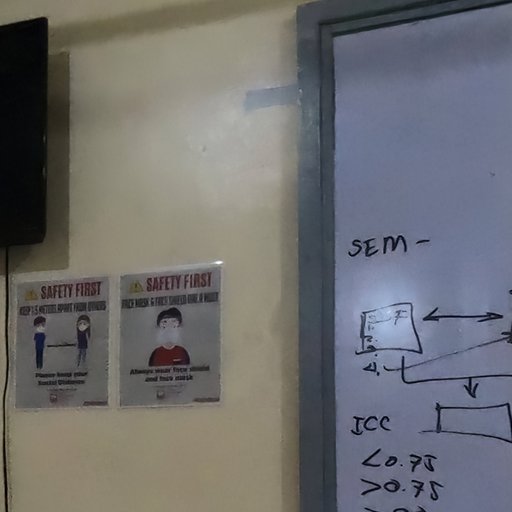 SAFETY FIRST
KEEP 1.5 METERS APART FROM OTHERS
Please keep your
Social Distance
SAFETY FIRST
FACE MASK & FACE SHIELD
Always wear face shield
and face mask
SEM -
ICC
<0.75
>0.75